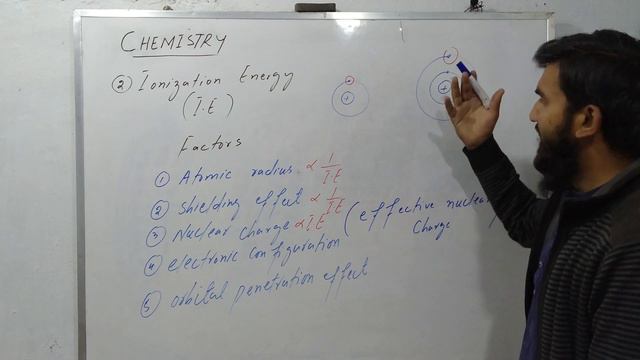 CHEMISTRY
② Ionization Energy
(I.E)
Factors
① Atomic radius ∝ 1/I.E
② Shielding effect ∝ 1/I.E
③ Nuclear charge ∝ I.E (effective nuclear charge)
④ electronic configuration
⑤ orbital penetration effect